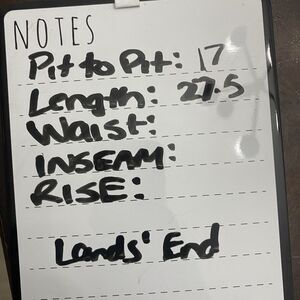 NOTES
Pit to Pit: 17
Length: 27.5
Waist:
INSEAM:
RISE:
Lands' End